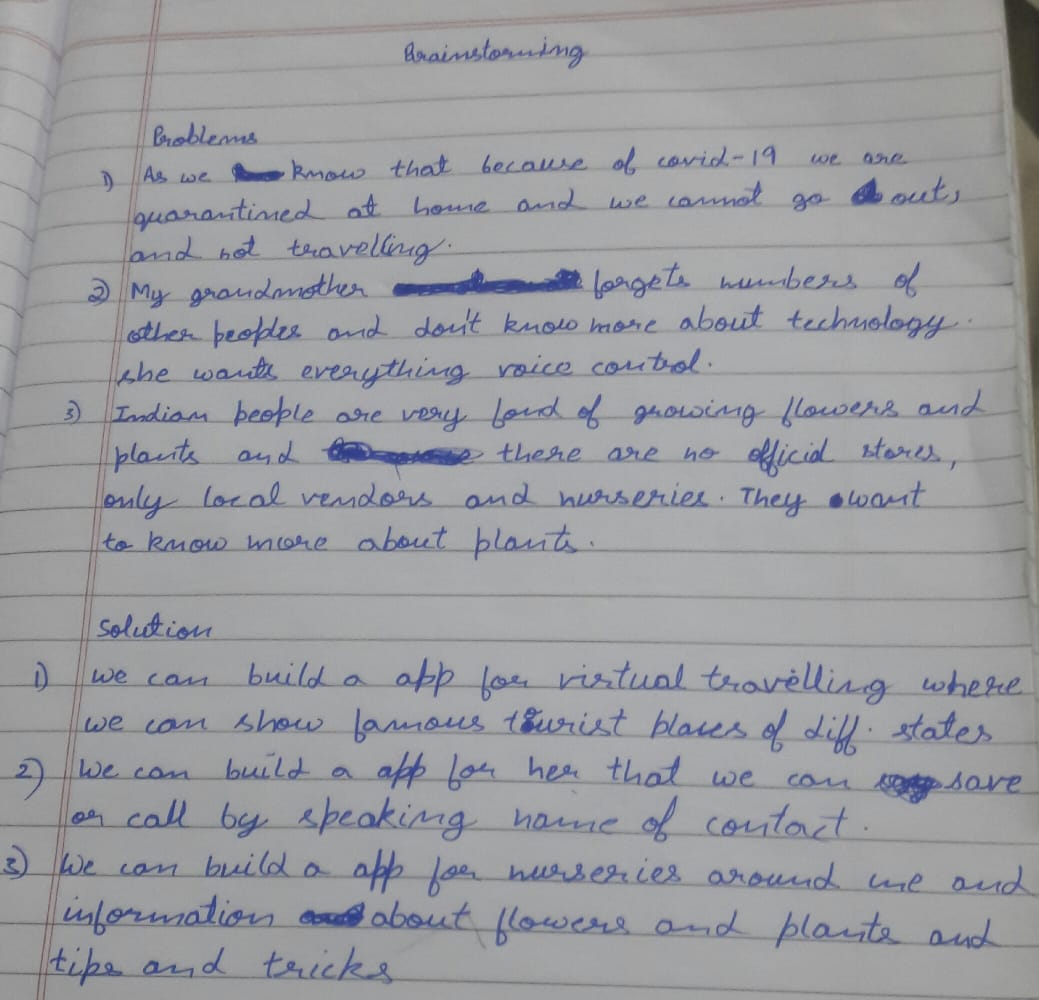 Brainstorming
Problems
1) As we know that because of covid-19 we are
quarantined at home and we cannot go out,
and not travelling.
2) My grandmother forgets numbers of
other peoples and don't know more about technology.
she wants everything voice control.
3) Indian people are very fond of growing flowers and
plants and there are no official stores,
only local vendors and nurseries. They want
to know more about plants.
Solution
1) we can build a app for virtual travelling where
we can show famous tourist places of diff. states
2) We can build a app for her that we can save
or call by speaking name of contact.
3) We can build a app for nurseries around me and
information about flowers and plants and
tips and tricks